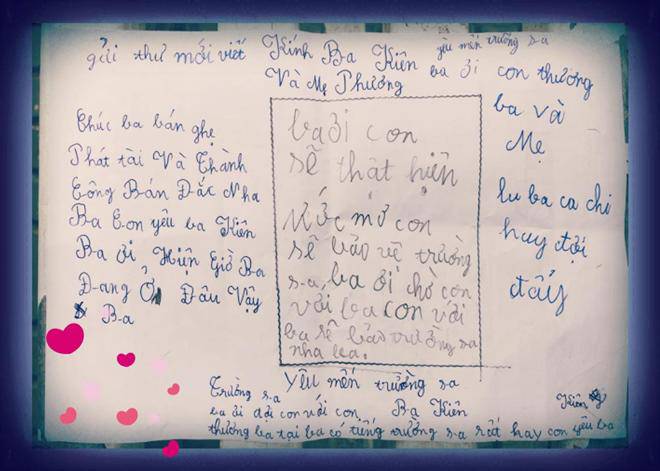 gửi thư mới viết Kính Ba Kiên yêu mến trường sa
Và Mẹ Phương ba ơi con thương
ba và
Mẹ
lu ba ca chi
huy đợi
đấy
Chúc ba bán ghẹ
Phát tài Và Thành
Công Bán Đắc Nha
Ba Con yêu ba Kiên
Ba ơi Hiện Giờ Ba
Đang Ở Đâu Vậy
Ba
ba ơi con
sẽ thật hiện
ước mơ con
sẽ bảo vệ trường
sa, ba ơi chờ con
với ba con với
ba sẽ bảo trường sa
nha ba.
Trường sa Yêu mến trường sa
ba ơi đợi con với con Ba Kiên Kiên
thương ba tại ba có tiếng trường sa rất hay con yêu ba